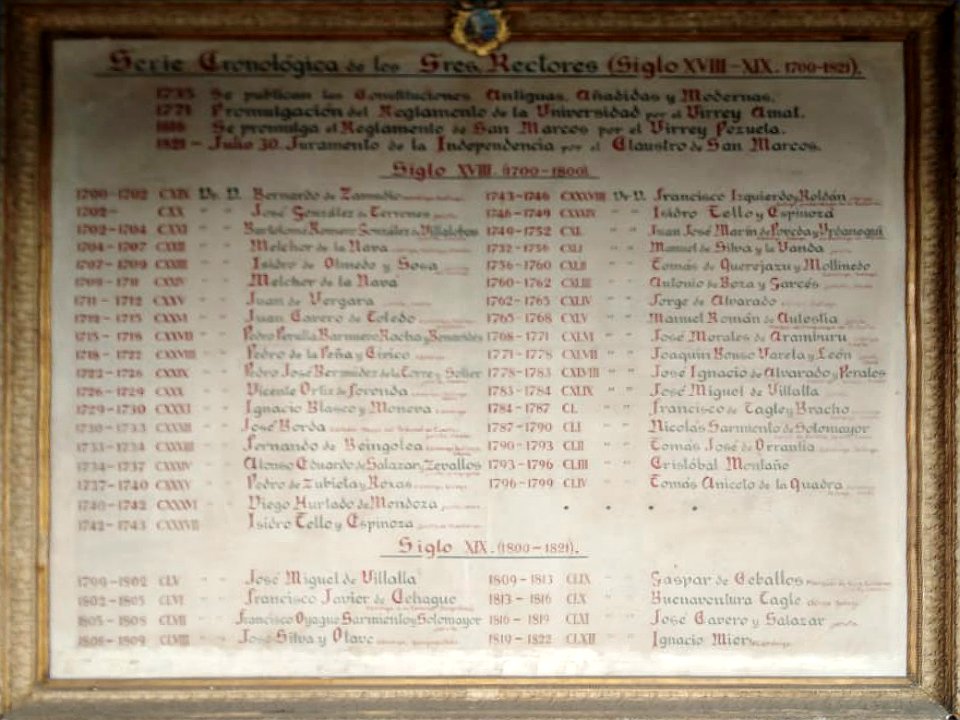 Serie Cronológica de los Sres. Rectores (Siglo XVIII-XIX. 1700-1821).
1735 Se publican las Constituciones Antiguas, Añadidas y Modernas.
1771 Promulgación del Reglamento de la Universidad por el Virrey Amat.
Se promulga el Reglamento de San Marcos por el Virrey Pezuela.
1821 - Julio 30. Juramento de la Independencia por el Claustro de San Marcos.
Siglo XVIII (1700-1800).
1700-1702 CXIX Dr. D. Bernardo de Zamudio
1702- CXX " " José González de Terrones
1702-1704 CXXI " " Bartolomé Romero González de Villalobos
1704-1707 CXXII " " Melchor de la Nava
1707-1709 CXXIII " " Isidro de Olmedo y Sosa
1709-1711 CXXIV " " Melchor de la Nava
1711-1712 CXXV " " Juan de Vergara
CXXVI " " Juan Cavero de Toledo
1715-1718 CXXVII " " Pedro Peralta Barnuevo Rocha y Benavides
1718-1722 CXXVIII " " Pedro de la Peña y Cívico
1722-1726 CXXIX " " Pedro José Bermúdez de la Torre y Solier
1726-1729 CXXX " " Vicente Ortiz de Foronda
1729-1730 CXXXI " " Ignacio Blasco y Moneva
1730-1733 CXXXII " " José Borda
1733-1734 CXXXIII " " Fernando de Beingolea
1734-1737 CXXXIV " " Alonso Eduardo de Salazar y Zevallos
1737-1740 CXXXV " " Pedro de Zubieta y Roxas
1740-1742 CXXXVI " " Diego Hurtado de Mendoza
1742-1743 CXXXVII " " Isidro Tello y Espinoza
1743-1746 CXXXVIII Dr. D. Francisco Izquierdo y Roldán
1746-1749 CXXXIX " " Isidro Tello y Espinoza
1749-1752 CXL " " Juan José Marín de Poveda y Urdanegui
1752-1756 CXLI " " Manuel de Silva y la Vanda
1756-1760 CXLII " " Tomás de Querejazu y Mollinedo
1760-1762 CXLIII " " Antonio de Boza y Garcés
1762-1765 CXLIV " " Jorge de Alvarado
1765-1768 CXLV " " Manuel Román de Aulestia
1768-1771 CXLVI " " José Morales de Aramburu
1771-1778 CXLVII " " Joaquín Bouso Varela y León
1778-1783 CXLVIII " " José Ignacio de Alvarado y Perales
1783-1784 CXLIX " " José Miguel de Villalta
1784-1787 CL " " Francisco de Tagle y Bracho
1787-1790 CLI " " Nicolás Sarmiento de Solomayor
1790-1793 CLII " " Tomás José de Orrantia
1793-1796 CLIII " " Cristóbal Montaño
1796-1799 CLIV " " Tomás Aniceto de la Quadra
Siglo XIX. (1800-1821).
1799-1802 CLV " " José Miguel de Villalta
1802-1805 CLVI " " Francisco Javier de Echague
1805-1808 CLVII " " Francisco Oyague Sarmiento y Solomayor
1808-1809 CLVIII " " José Silva y Olave
1809-1813 CLIX " " Gaspar de Ceballos
1813-1816 CLX " " Buenaventura Tagle
1816-1819 CLXI " " José Cavero y Salazar
1819-1822 CLXII " " Ignacio Mier